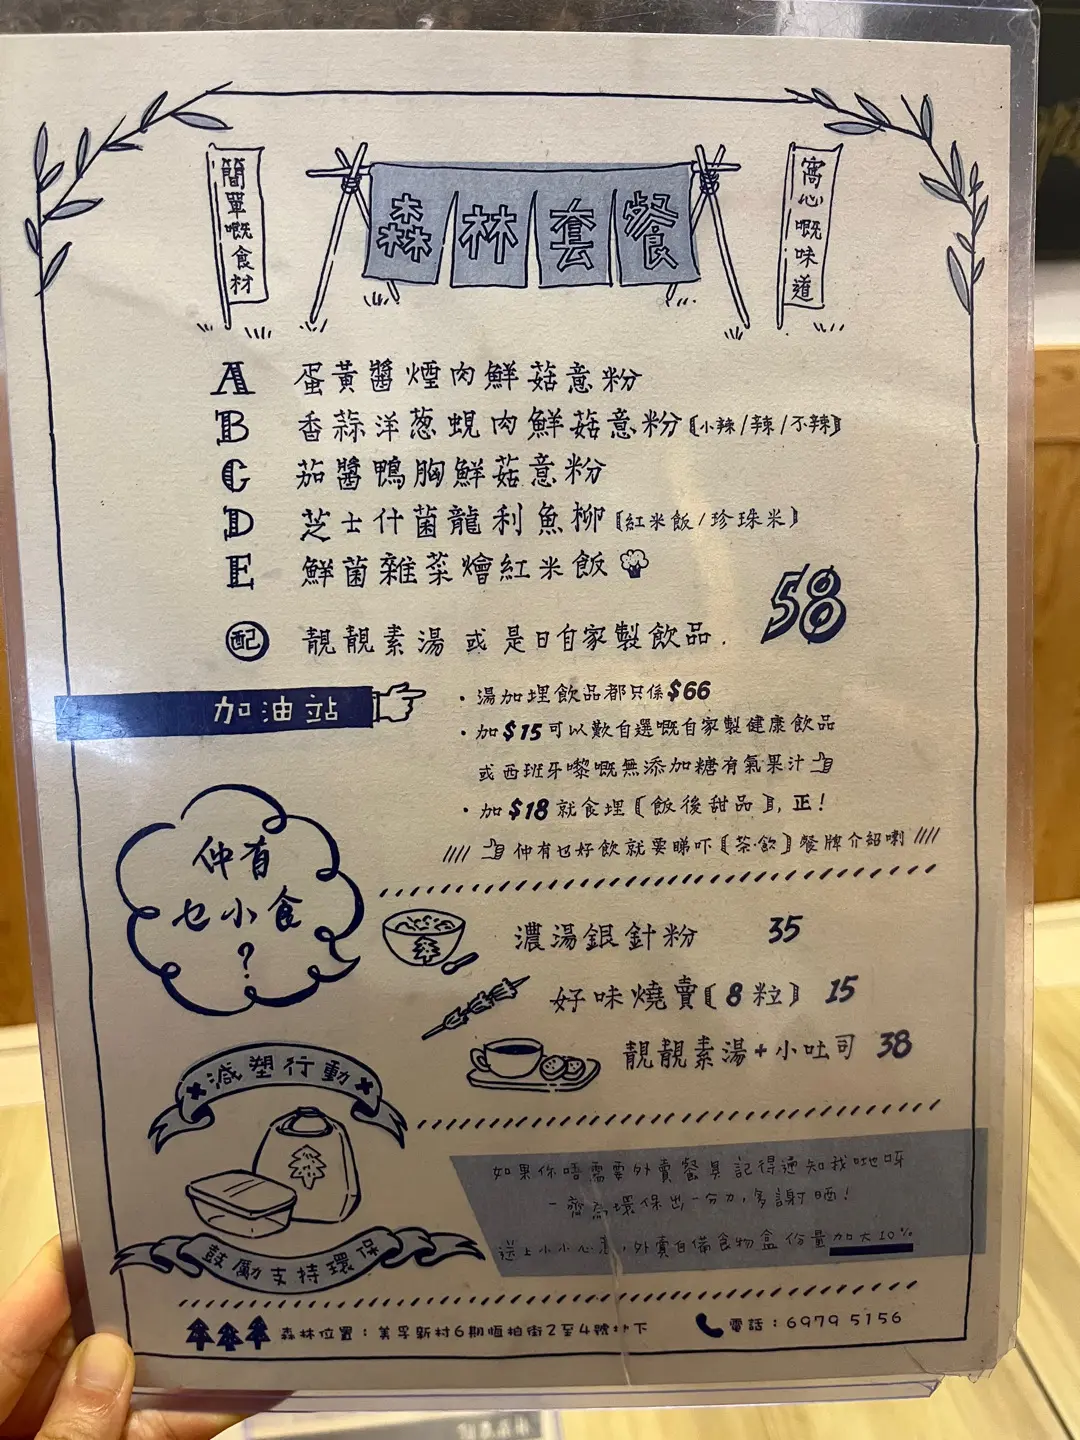 簡單嘅食材
森林套餐
窩心嘅味道
A 蛋黃醬煙肉鮮菇意粉
B 香蒜洋葱蜆肉鮮菇意粉〖小辣/辣/不辣〗
C 茄醬鴨胸鮮菇意粉
D 芝士什菌龍利魚柳〖紅米飯/珍珠米〗
E 鮮菌雜菜燴紅米飯
58
配 靚靚素湯 或 是日自家製飲品.
加油站
·湯加埋飲品都只係$66
·加$15可以歎自選嘅自家製健康飲品
或西班牙嚟嘅無添加糖有氣果汁
·加$18就食埋〖飯後甜品〗,正!
仲有乜好飲就要睇吓〖茶·飲〗餐牌介紹喇
仲有
乜小食
?
濃湯銀針粉 35
好味燒賣〖8粒〗 15
靚靚素湯+小吐司 38
減塑行動
鼓勵支持環保
如果你唔需要外賣餐具記得通知我哋呀
一齊為環保出一分力,多謝晒!
送上小小心意,外賣自備食物盒份量加大10%
森林位置:美孚新村6期恆柏街2至4號地下
電話:6979 5156